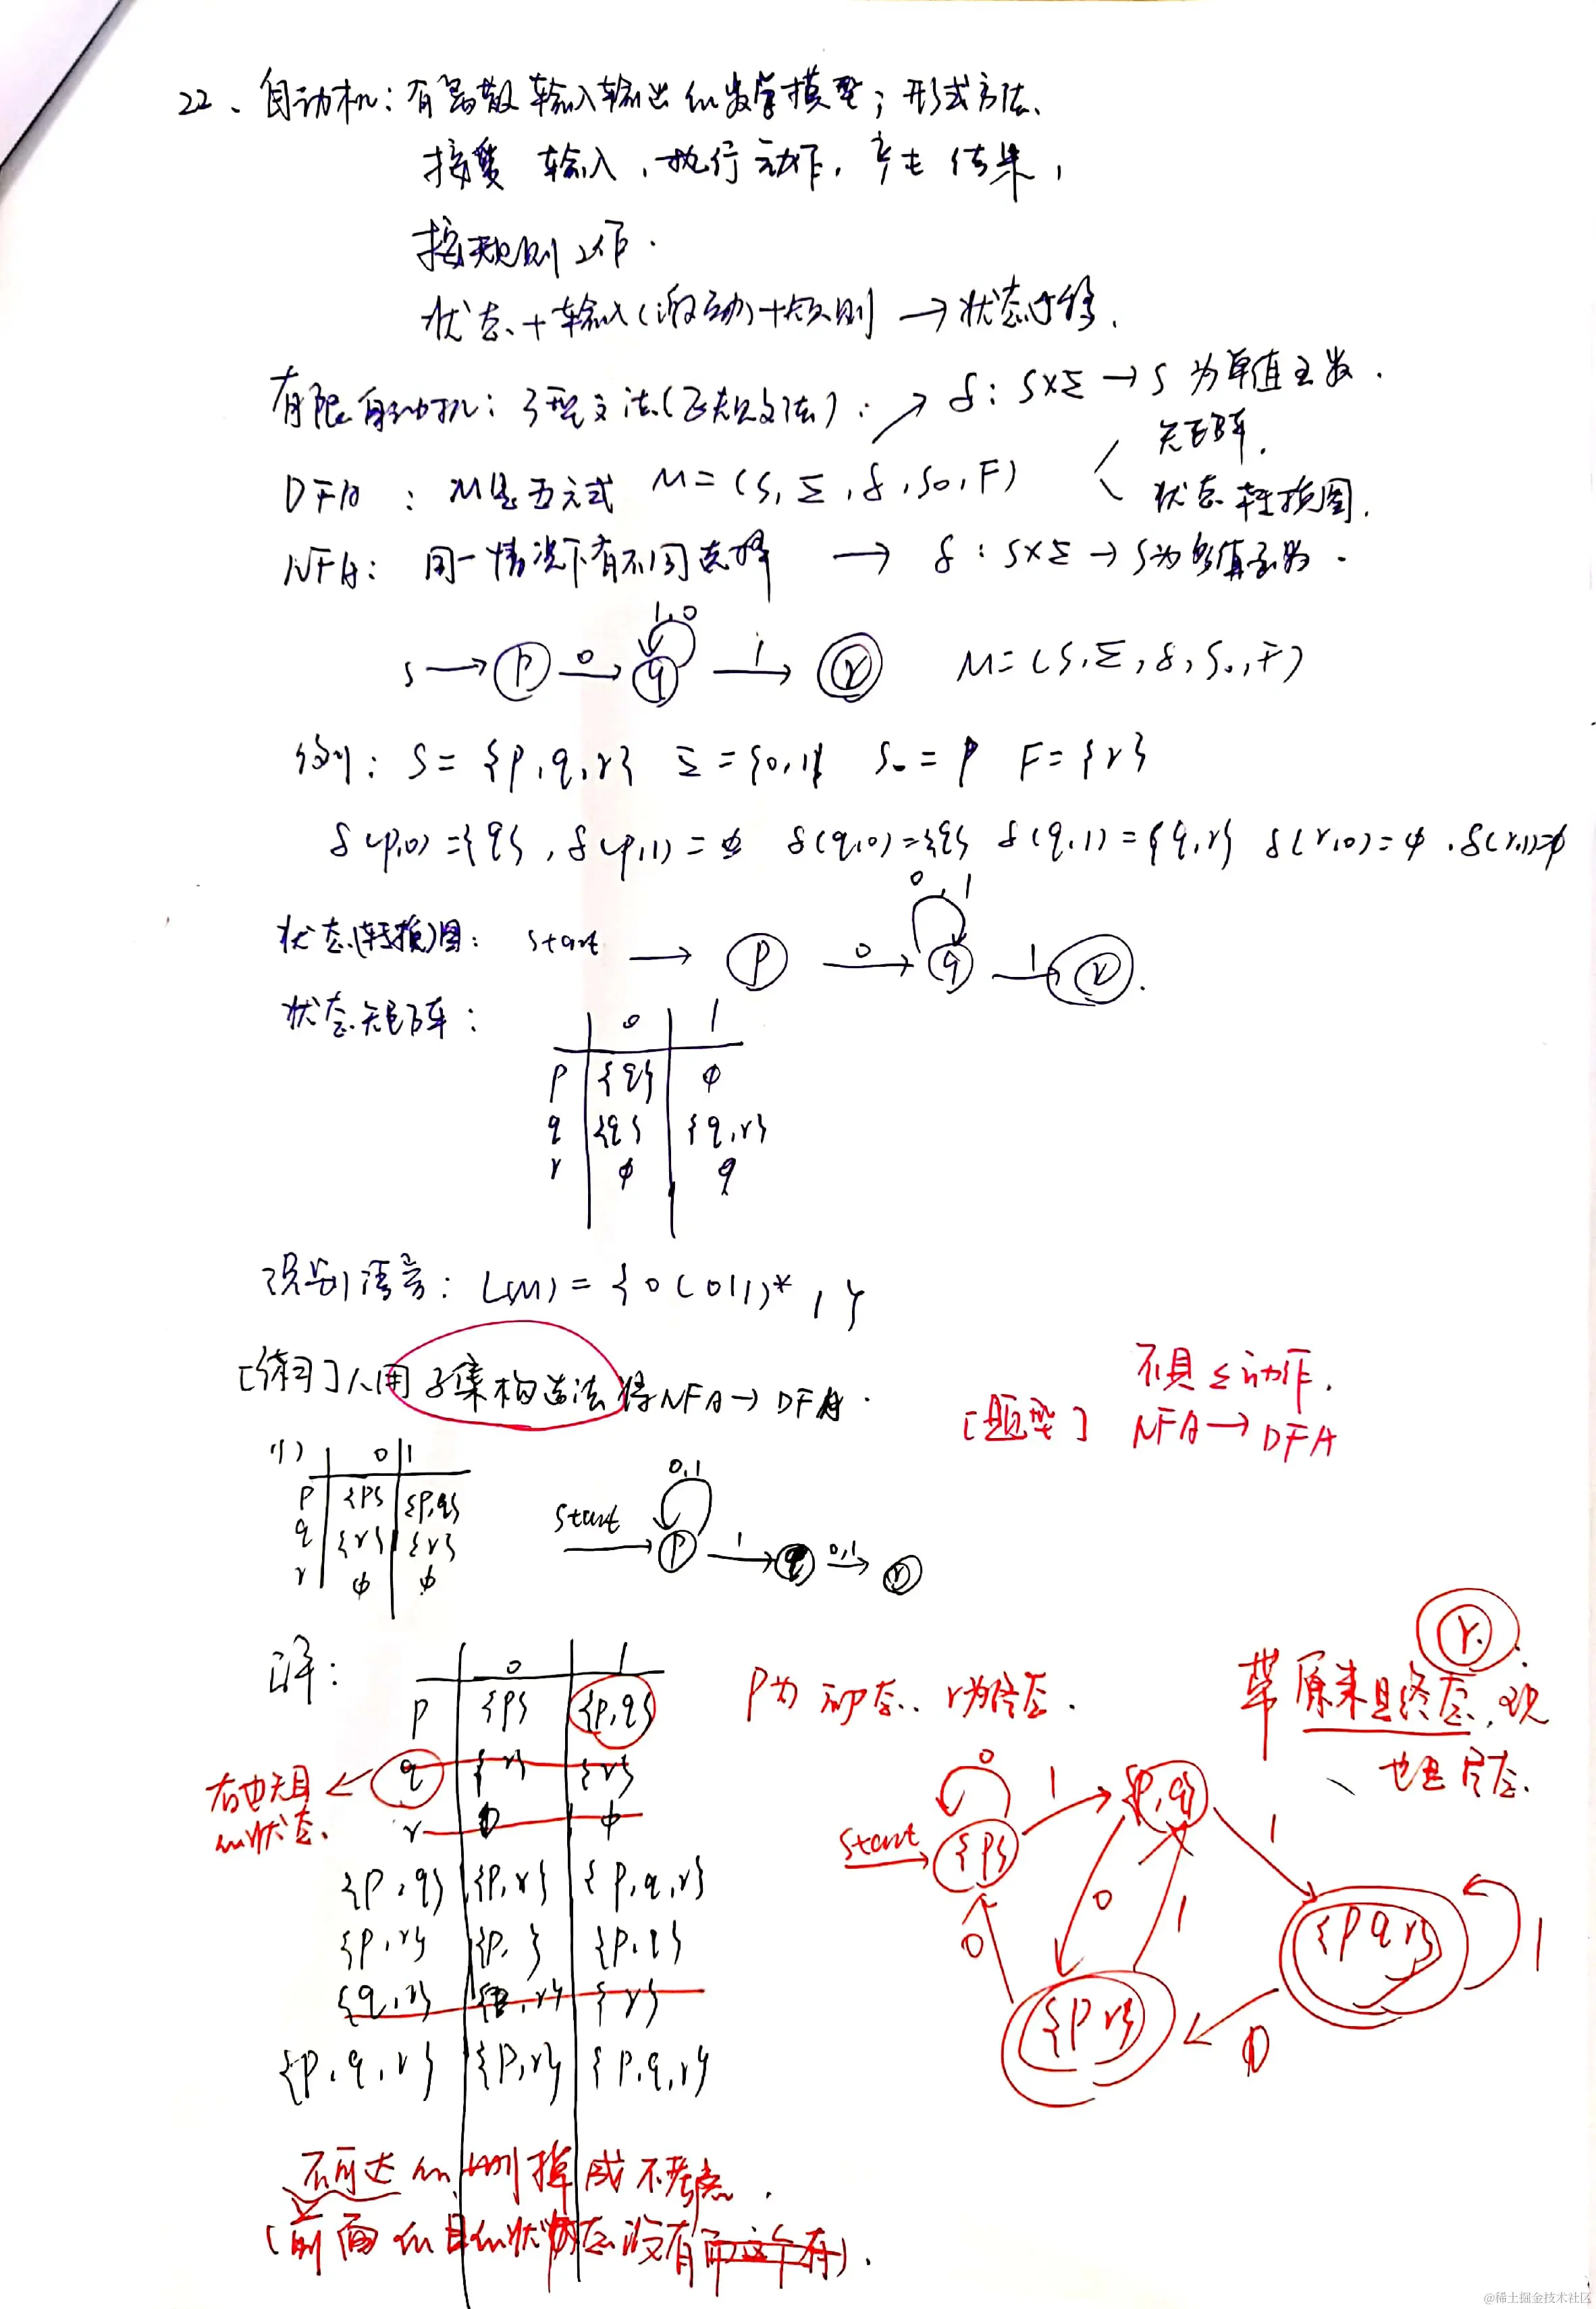 22、自动机：有离散输入输出的数学模型；形式方法、
接受 输入，执行动作，产生结果，
按规则工作.
状态+输入(激动)+规则 → 状态迁移.
有限自动机：3型文法(正规文法)： ↗ δ: S×Σ → S 为单值函数.
DFA : M是五元式 M=(S, Σ, δ, S₀, F) < 矩阵. 状态转换图.
NFA: 同一情况下有不同选择 → δ: S×Σ → S为多值函数.
S → p 0 q 1,0 1 r M=(S,Σ,δ,S₀,F)
例: S={p,q,r} Σ={0,1} S₀=p F={r}
δ(p,0)={q}, δ(p,1)=φ δ(q,0)={q} δ(q,1)={q,r} δ(r,0)=φ. δ(r,1)=φ
状态(转换)图: start → p 0 q 0,1 1 r.
状态矩阵:
0 1
p {q} φ
q {q} {q,r}
r φ φ
识别语言: L(M)={0(0|1)*1}
[练习] 1.用子集构造法将NFA→DFA.
[题型] 不具ε动作. NFA→DFA
(1) 0 1
p {p} {p,q}
q {r} {r}
r φ φ
start p 0,1 1 q 0,1 r
解:
0 1
p {p} {p,q}
q {r} {r}
r φ φ
{p,q} {p,r} {p,q,r}
{p,r} {p, } {p,q}
{q,r} { ,r} {r}
{p,q,r} {p,r} {p,q,r}
p为初态.. r为终态.
r.
原来是终态, 现
也是终态.
的状态.
start {p} 0 1 {p,q} 1 {p q r} 1
0 0 1 {p r} 0
不可达的删掉或不考虑.
(前面的 状态没有而这个有).
@稀土掘金技术社区